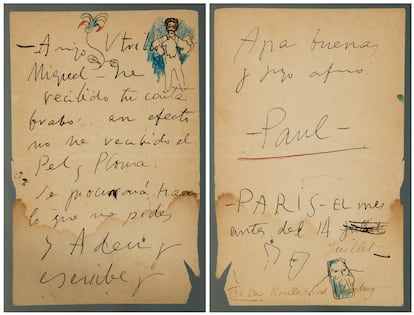 - Amigo Utrillo
Miguel - he
recibido tu carta
brabo.. en efecto
no he recibido el
Pel y Ploma.
Se procurará hacer
lo que me pides
y Adeu y
escribe y
Apa buenas
y tuyo afmo
- Paul -
- PARIS - El mes
antes del 14
Juillet
130 Bis Boulevard